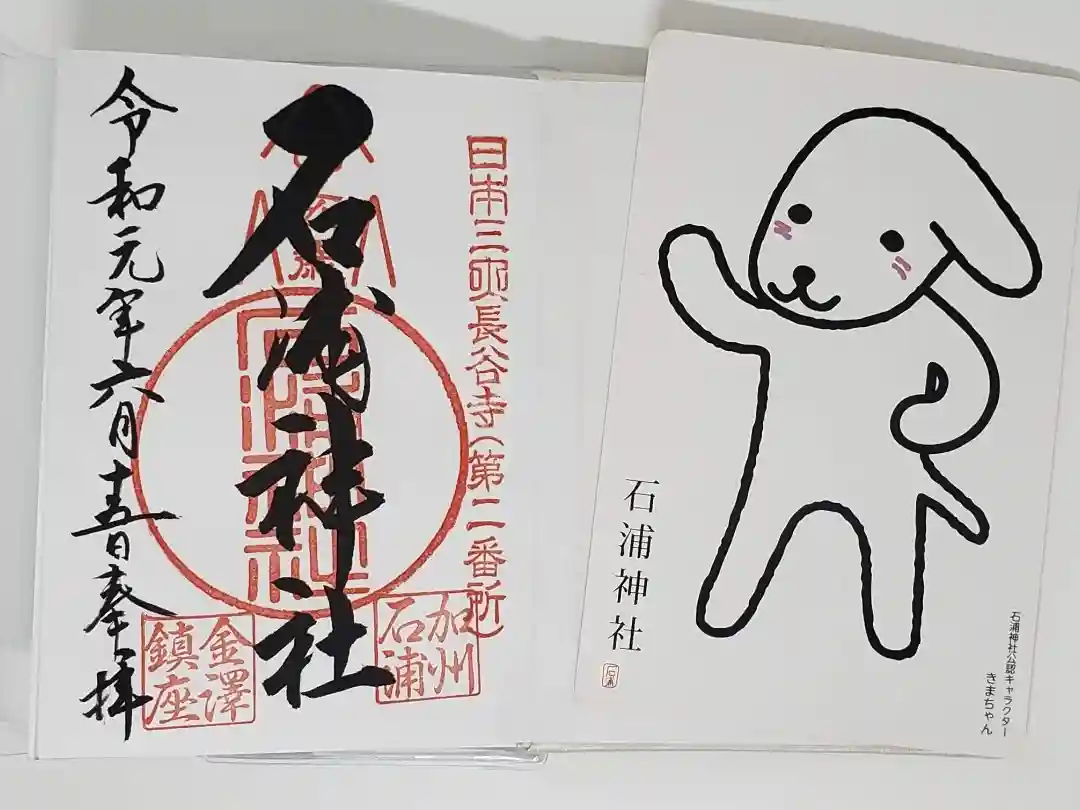 日本三所長谷寺(第二番所)
石浦神社
令和元年六月十五日奉拝
加州
石浦
金澤
鎮座
石浦神社
石浦
石浦神社公認キャラクター
きまちゃん